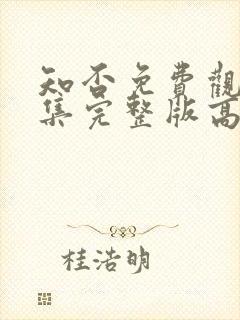 知否免費觀
集完整版高
桂浩明